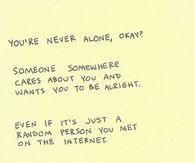 YOU'RE NEVER ALONE, OKAY?
SOMEONE SOMEWHERE
CARES ABOUT YOU AND
WANTS YOU TO BE ALRIGHT.
EVEN IF IT'S JUST A
RANDOM PERSON YOU MET
ON THE INTERNET.